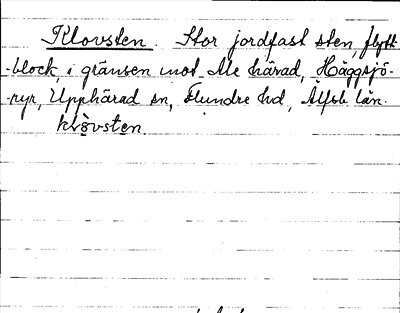 Klovsten. Stor jordfast sten flytt-
-block, i gränsen mot Ale härad, Häggsjö-
-ryr, Upphärad sn, Flundre hd, Älfsb län.
klo̊vsten.